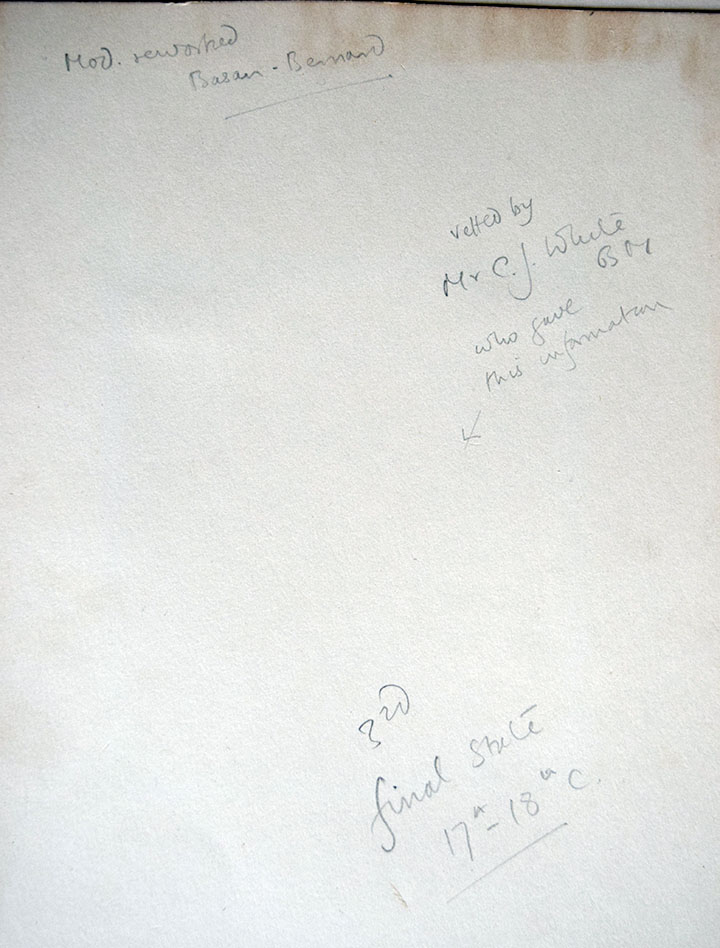 Mod. reworked
Basan - Bernard
vetted by
Mr C. J. White
BM
who gave
this information
3rd
final state
17th - 18th C.